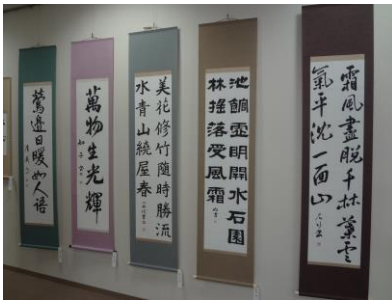 霜風盡脱千林葉雲
氣平沈一面山
池館虚明開水石園
林揺落受風霜
美花修竹随時勝流
水青山繞屋春
萬物生光輝
鶯邊日暖如人語